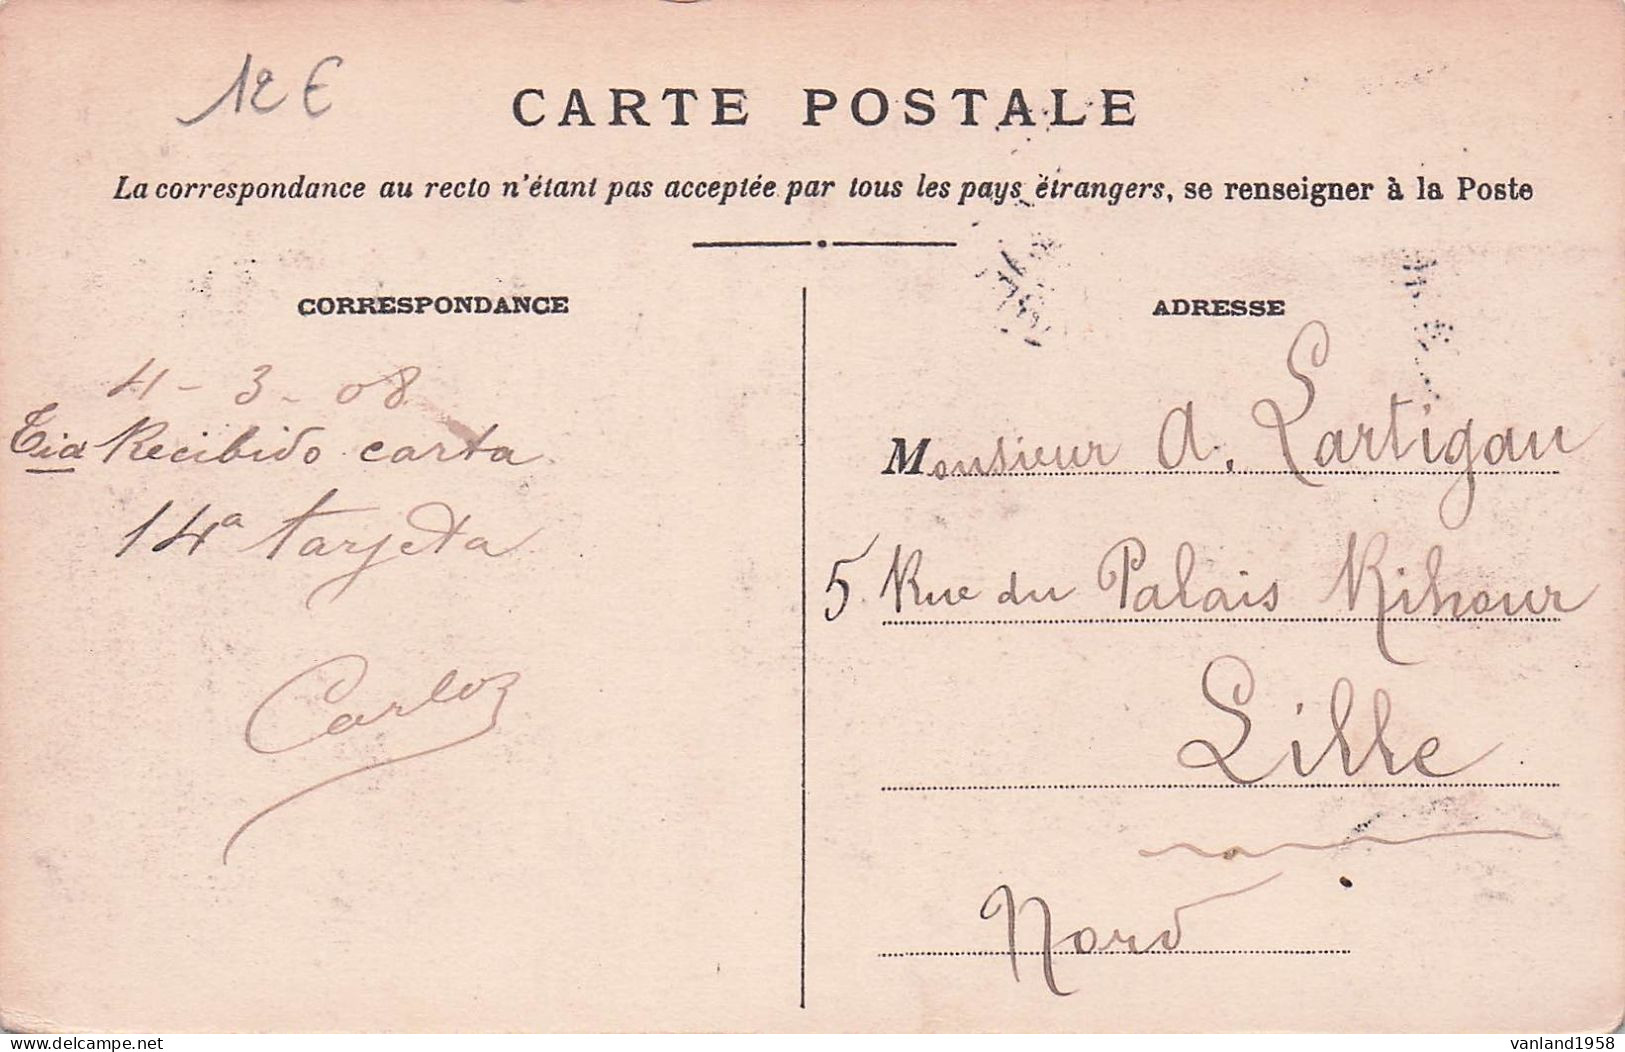 12 €
CARTE POSTALE
La correspondance au recto n'étant pas acceptée par tous les pays étrangers, se renseigner à la Poste
CORRESPONDANCE
4 - 3 - 08
Recibido carta
14ª tarjeta
Carlos
ADRESSE
Monsieur A. Lartigau
5 Rue du Palais Rihour
Lille
Nord
delcampe.net
vanland1958